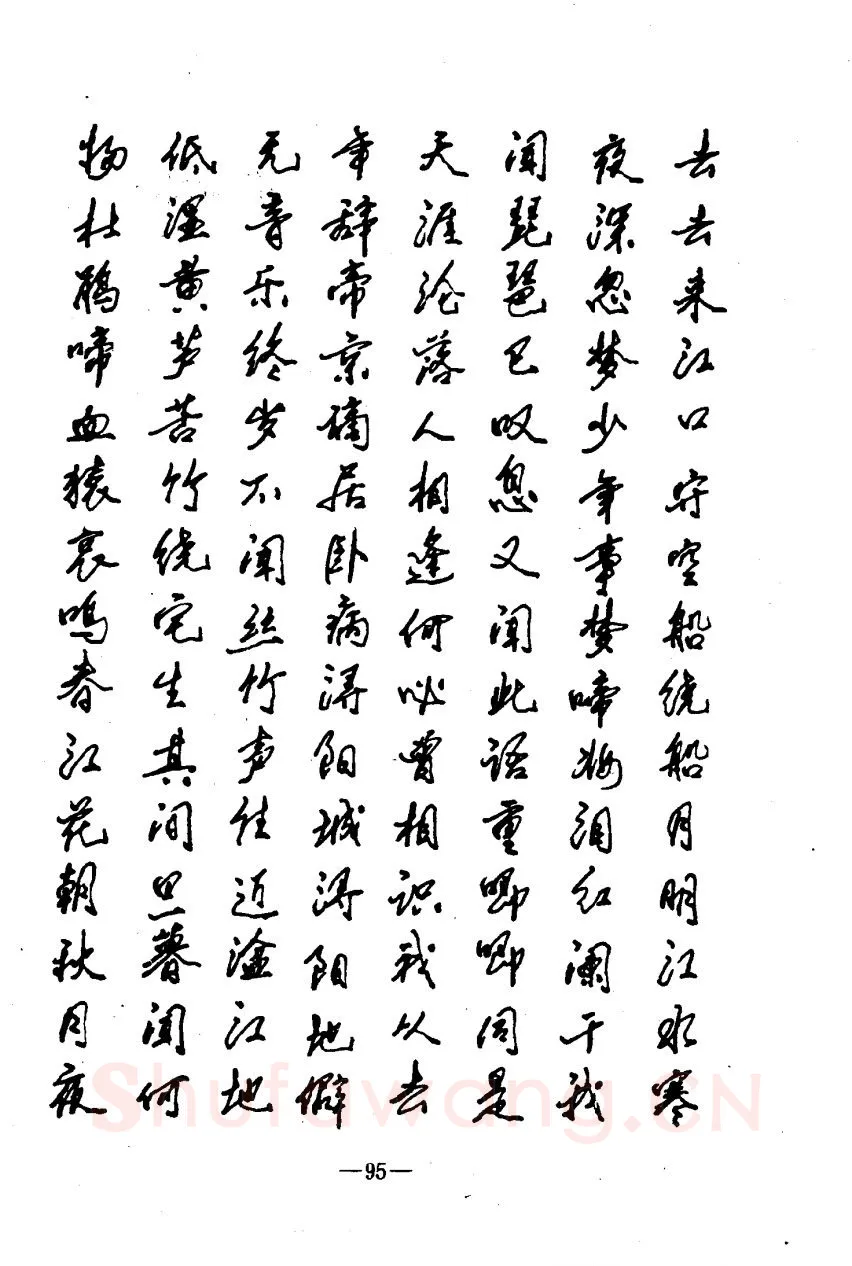 去去来江口守空船绕船月明江水寒
夜深忽梦少年事梦啼妆泪红澜干我
闻琵琶已叹息又闻此语重唧唧同是
天涯沦落人相逢何必曾相识我从去
年辞帝京谪居卧病浔阳城浔阳地僻
无音乐终岁不闻丝竹声住近湓江地
低湿黄芦苦竹绕宅生其间旦暮闻何
物杜鹃啼血猿哀鸣春江花朝秋月夜
—95—
Shufawang.CN